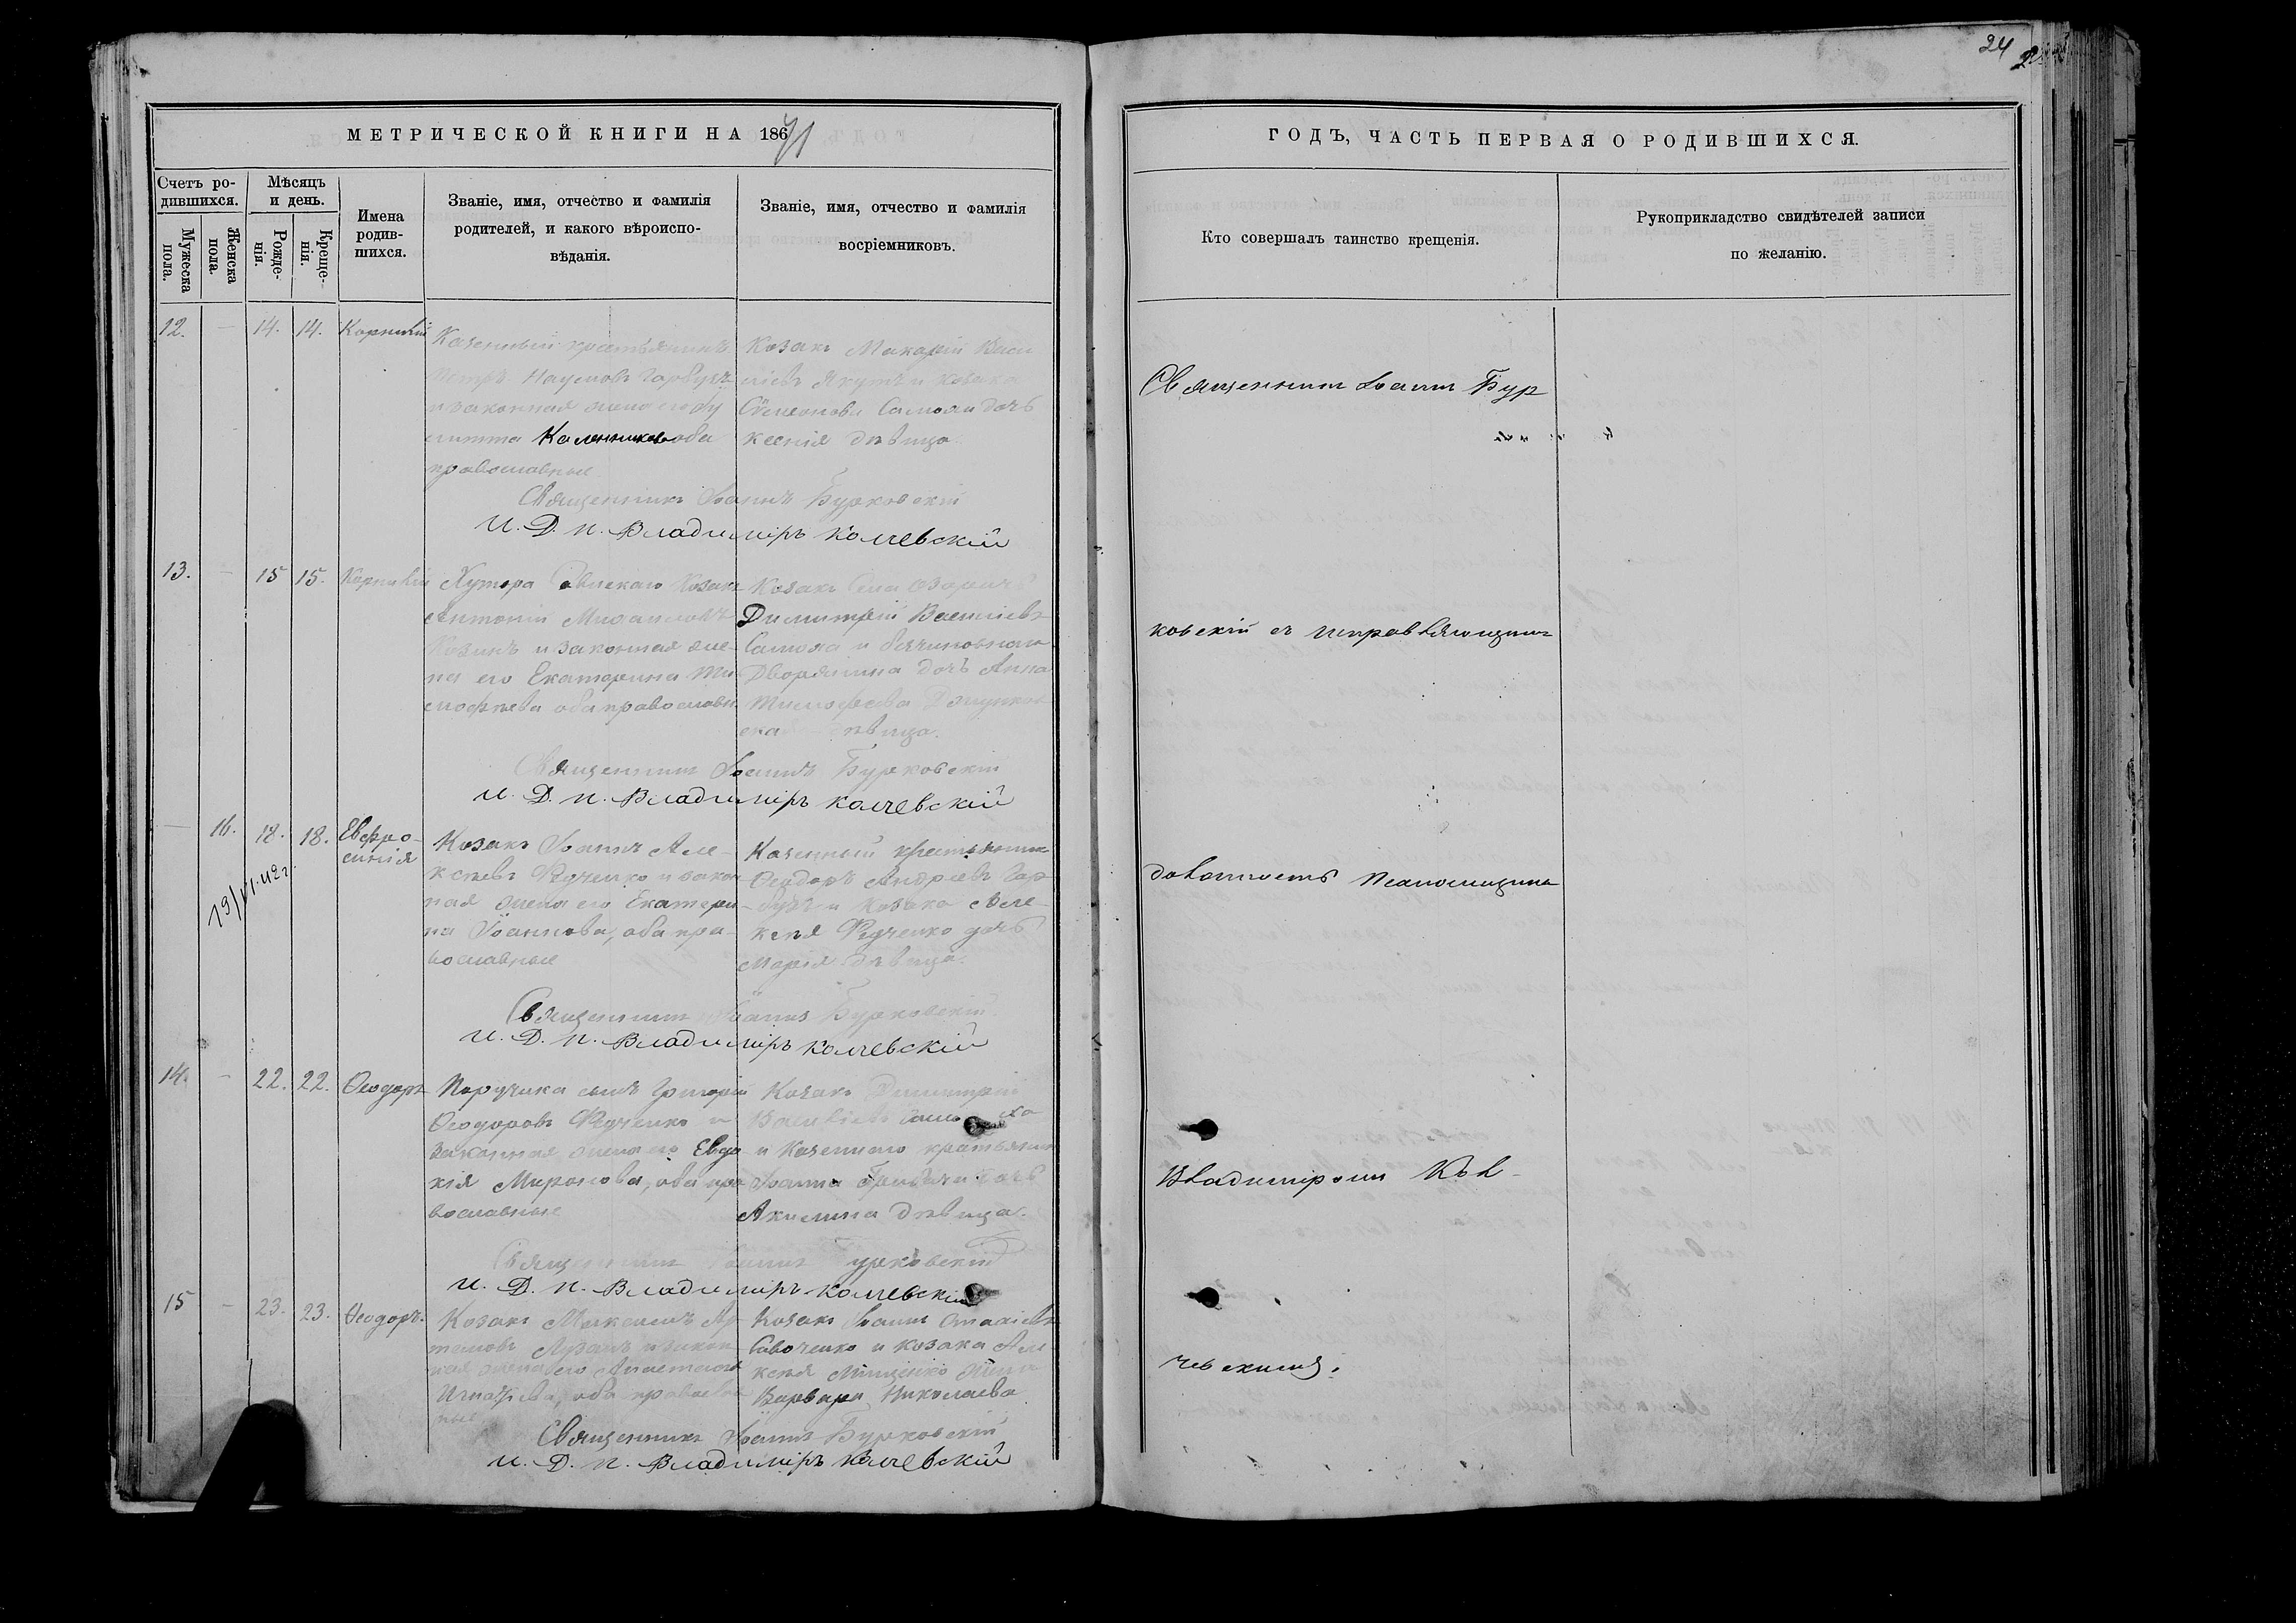 24
МЕТРИЧЕСКОЙ КНИГИ НА 1871
ГОДЪ, ЧАСТЬ ПЕРВАЯ О РОДИВШИХСЯ.
Счетъ ро-
дившихся.
Мужеска
пола.
Женска
пола.
Мѣсяцъ
и день.
Рожде-
нія.
Креще-
нія.
Имена
родив-
шихся.
Званіе, имя, отчество и фамилія
родителей, и какого вѣроиспо-
вѣданія.
Званіе, имя, отчество и фамилія
воспріемниковъ.
Кто совершалъ таинство крещенія.
Рукоприкладство свидѣтелей записи
по желанію.
12. — 14. 14. Корнилій
Казенный крестьянинъ
Петръ Наумовъ Гарбузъ
и законная жена его
Калинникова оба
православные
Козакъ Макарій Васи
ліевъ Якутъ и козака
Симеонова дочь
Ксенія дѣвица
Священникъ Іоаннъ Бурковскій
И. Д. п. Владиміръ Колчевскій
13. — 15 15. Корнилій
Хутора Козакъ
Антоній Михаиловъ
Козинъ и законная же-
на его Екатерина Ти
моѳѣева оба православн
Козакъ
Димитрій Василіевъ
Самоха и
Дворянина дочь Анна
Тимоѳеева
ская дѣвица.
Священникъ Іоаннъ Бурковскій
И. Д. п. Владиміръ Колчевскій
— 16. 18. 18. Евфро-
синія
Козакъ Іоаннъ Але-
ксѣевъ Федченко и закон
ная жена его Екатери
на Іоаннова, оба пра-
вославные
Казенный крестьянинъ
Ѳеодоръ Андріевъ Гар
бузъ и козака Але-
ксѣя Федченко дочь
Марія дѣвица.
Священникъ Іоаннъ Бурковскій
И. Д. п. Владиміръ Колчевскій
14. — 22. 22. Ѳеодоръ
Поручика сынъ Григорій
Ѳеодоровъ Федченко и
законная жена его Евдо
кія Миронова, оба пра
вославные
Козакъ Димитрій
Василіевъ Самоха
и казеннаго крестьянина
Іоанна дочь
Акилина дѣвица.
Священникъ Іоаннъ Бурковскій
И. Д. п. Владиміръ Колчевскій
15 — 23. 23. Ѳеодоръ.
Козакъ Максимъ Ар
темовъ и закон
ная жена его Анастасія
Игнатіева, оба православ
ные
Козакъ Іоаннъ
Савоченко и козака Але
ксѣя Мищенко жена
Варвара Николаева
Священникъ Іоаннъ Бурковскій
И. Д. п. Владиміръ Колчевскій
Священникъ Іоаннъ Бур
ковскій съ исправляющимъ
должность псаломщика
Владиміромъ Кол-
чевскимъ.